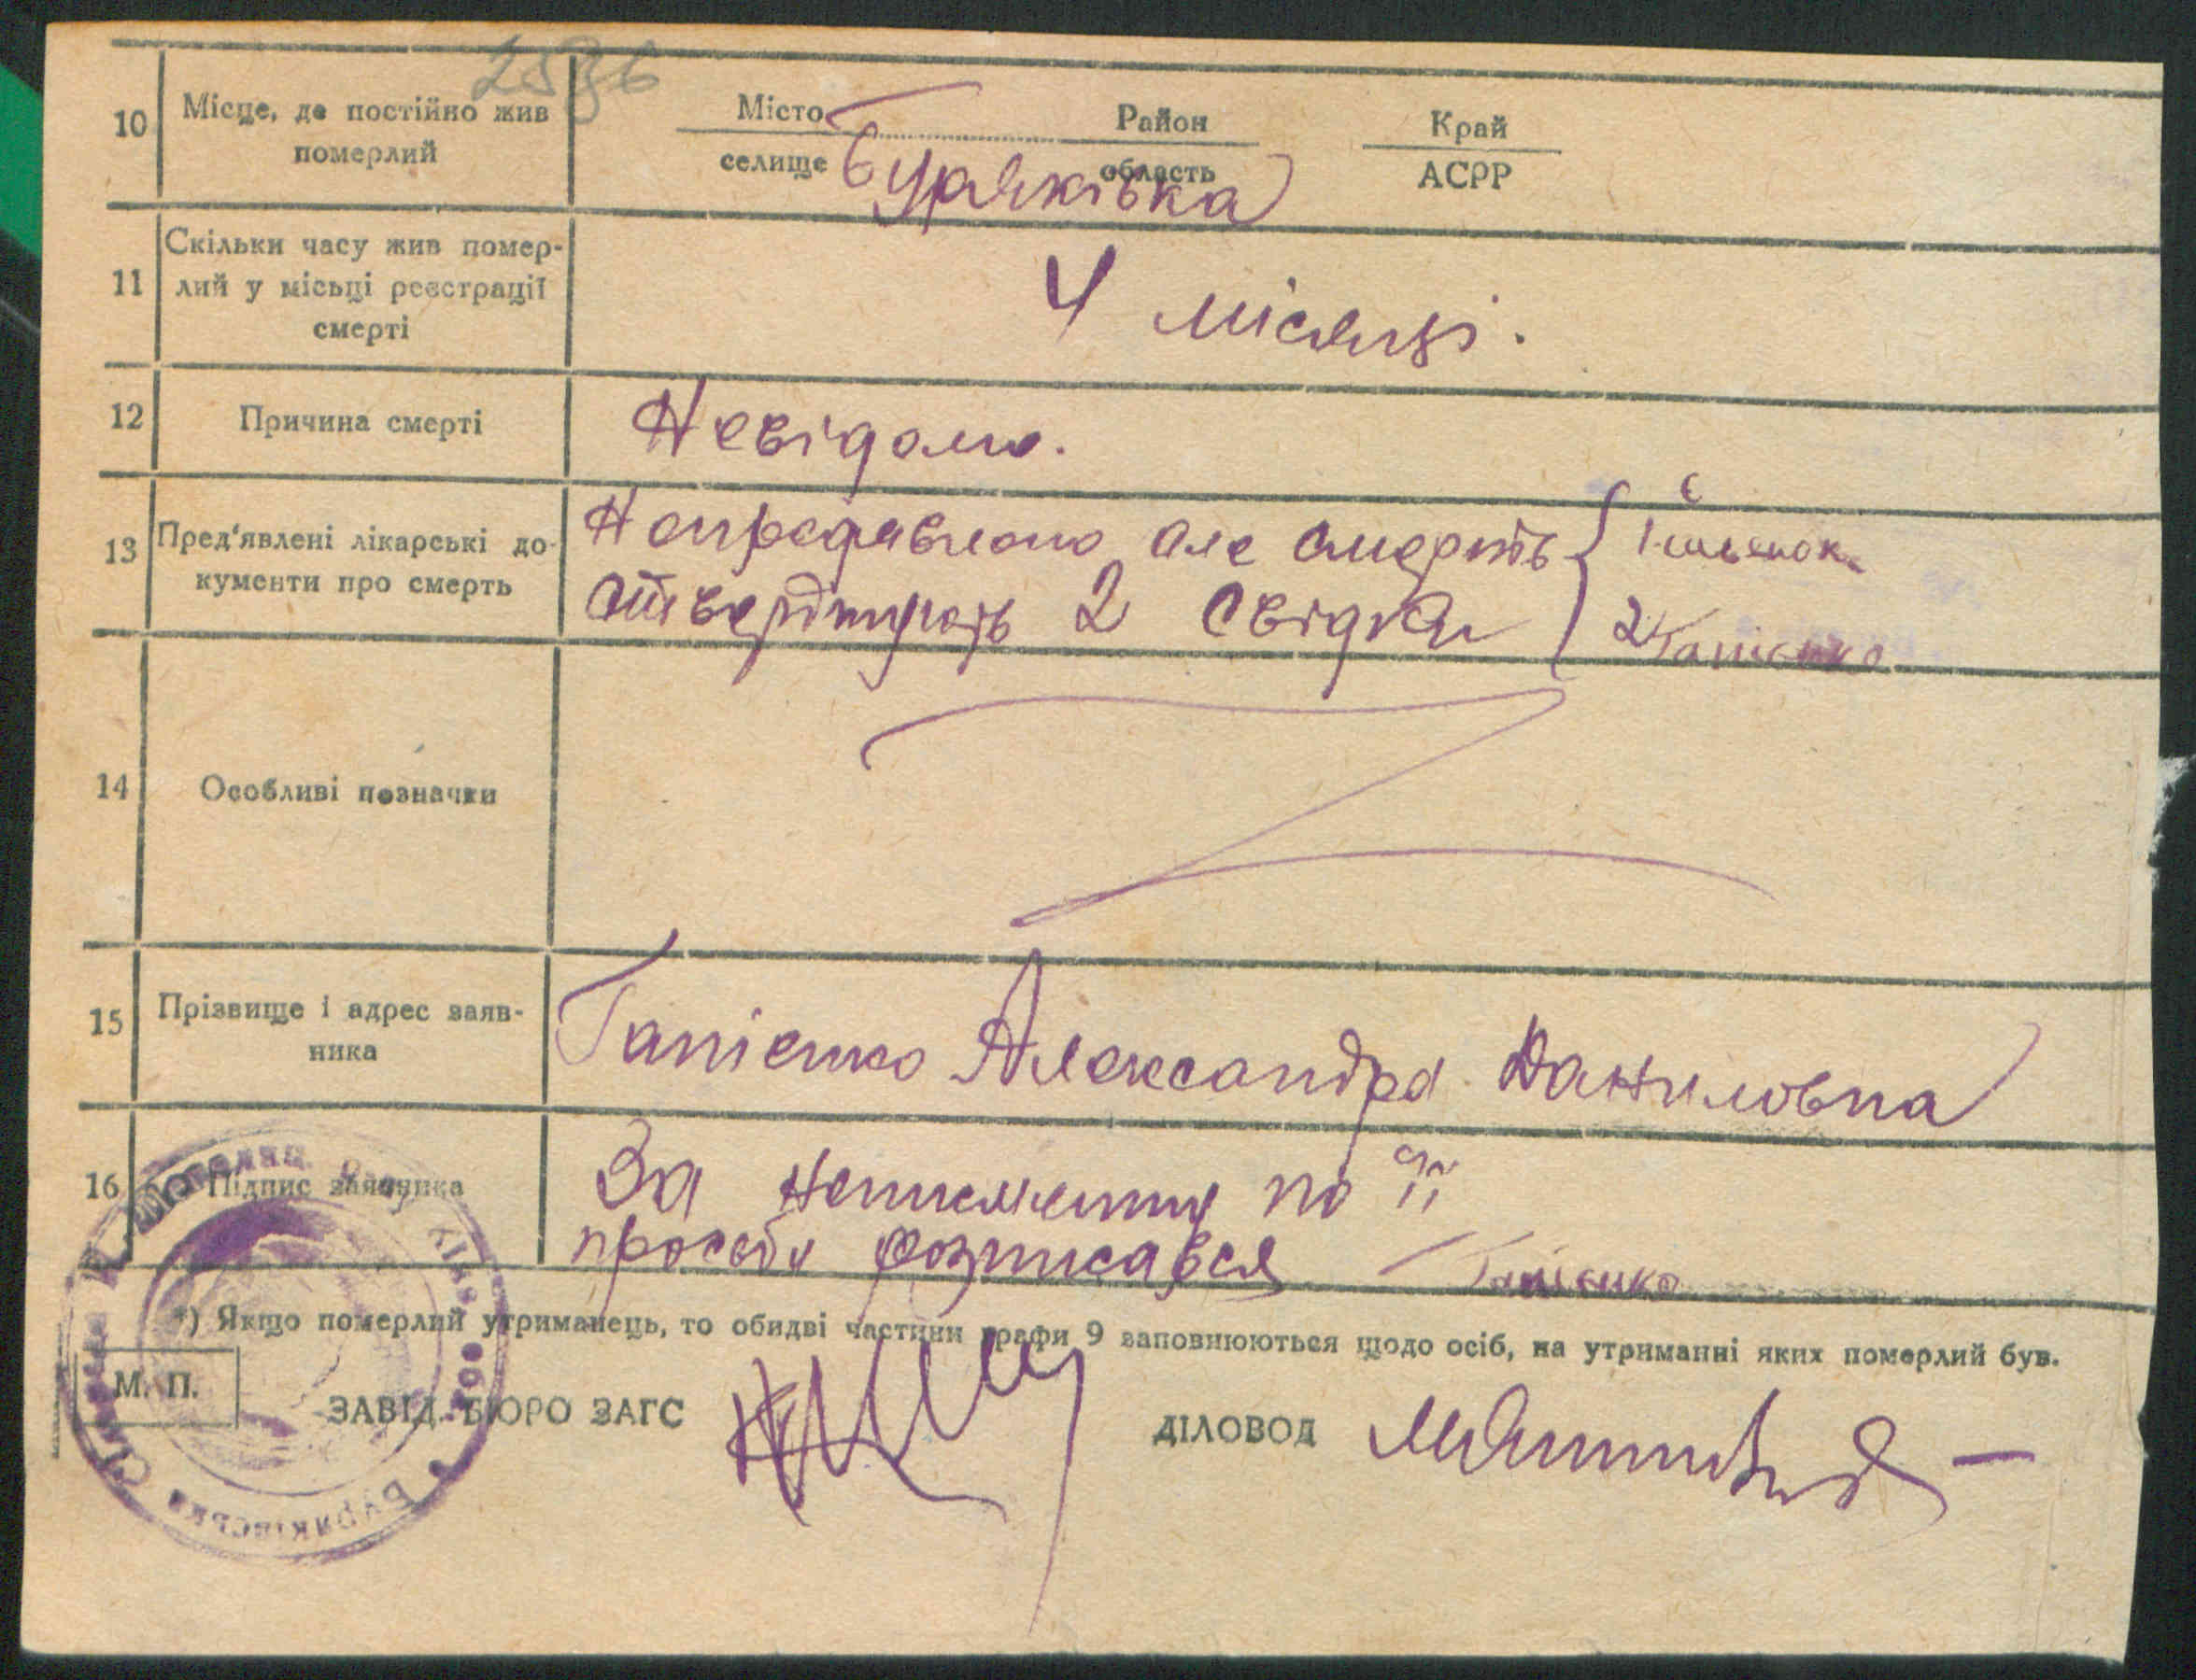 2536
10 Місце, де постійно жив померлий
Місто Район Край
селище область АСРР
Буряківка
11 Скільки часу жив помер-
лий у місьці реєстрації
смерті
4 місяці.
12 Причина смерті
Невідомо.
13 Пред'явлені лікарські до-
кументи про смерть
Непредявлено але смерть
стверджують 2 свідки
1
2 Гапієнко
14 Особливі позначки
15 Прізвище і адрес заяв-
ника
Гапієнко Александра Даниловна
16 Підпис заявника
За неписменну по її
просьби розписався Гапієнко
*) Якщо померлий утриманець, то обидві частини графи 9 заповнюються щодо осіб, на утриманні яких померлий був.
М. П.
ЗАВІД. БЮРО ЗАГС
ДІЛОВОД
Буряківська